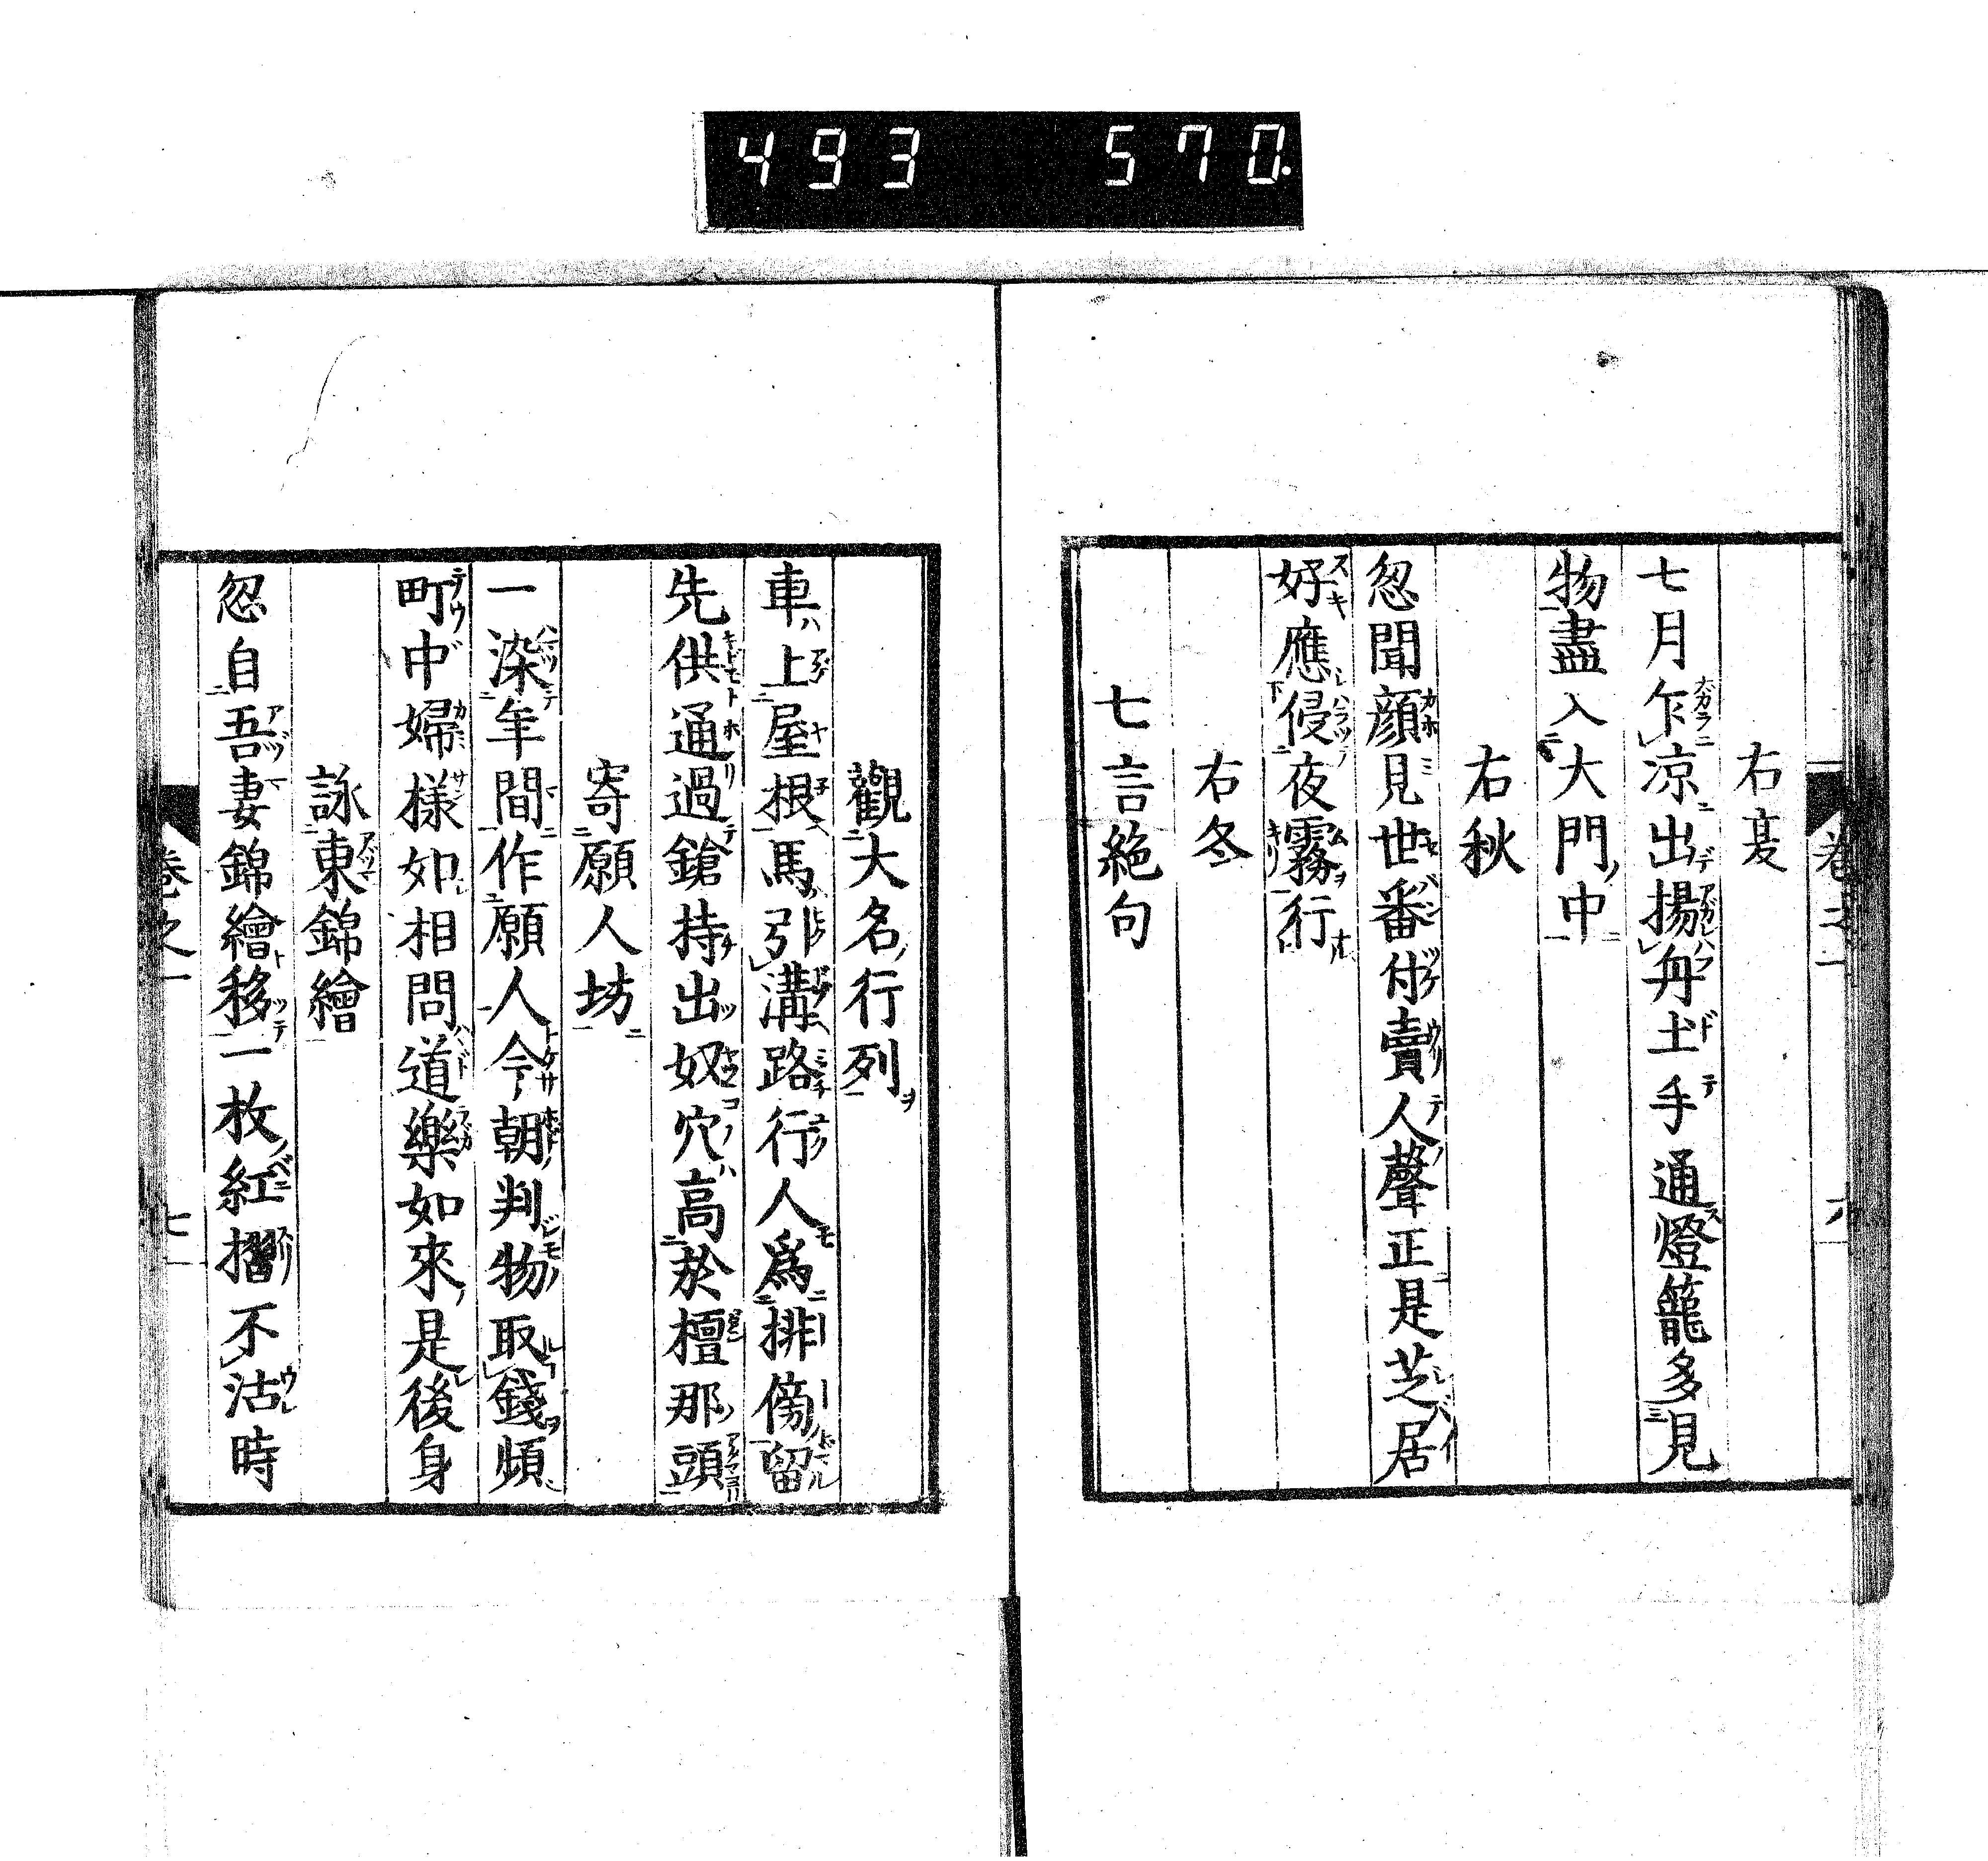 493 570.
右夏
七月乍凉出揚舟土手通燈籠多見
物盡入大門中
右秋
忽聞顔見世番付賣人聲正是芝居
好應侵夜霧行
右冬
七言絶句
觀大名行列
車上屋根馬引溝路行人爲排傍留
先供通過鎗持出奴穴高於檀那頭
寄願人坊
一染年間作願人今朝判物取錢頻
町中婦様如相問道樂如來是後身
詠東錦繪
忽自吾妻錦繪移一枚紅摺不沽時
卷之一
七